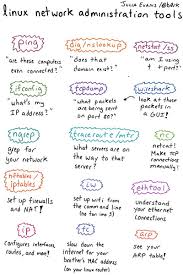 linux network administration tools
JULIA EVANS
@b0rk
ping
"are these computers
even connected?"
dig/nslookup
"does that
domain exist?"
netstat/ss
"am I using
that port?"
ifconfig
"what's my
IP address?"
tcpdump
"what packets
are being
sent on
port 80?"
wireshark
look at those
packets in
a GUI!
ngrep
grep for
your network
traceroute/mtr
what servers are
on the way to that
server?
nc
netcat!
make HTTP
connections
manually
nftables/
iptables
set up firewalls
and NAT!
iw
set up wifi from
the command line
ethtool
understand
your ethernet
connections
ip
configures interfaces,
routes, and more!
tc
slow down the
internet for your
arp
see your
ARP table!